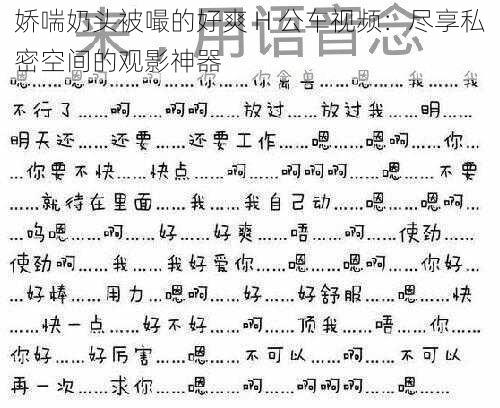 来，用语音念
娇喘奶头被嘬的好爽H 公车视频：尽享私
密空间的观影神器
嗯……嗯……嗯啊……你……你禽兽……嗯……我……我
不行了……啊……啊啊……放过……放过我……明……
明天还……还要……还要工作……嗯……嗯啊……你…
…你要不快……快点……啊……啊啊啊……嗯……不要
……就待在里面……我……我自己动……嗯……嗯啊…
…呜嗯……啊……好……好爽……唔……啊……使劲……
使劲啊……我……我好爱你……嗯……嗯啊……你好…
…好棒……用力…嗯啊……好……好舒服……嗯……快
……快一点……好不好……啊……顶我……唔……你……
你好……好厉害……嗯……不可以……啊……不可以
再一次……求你……嗯……啊……啊啊啊……嗯……